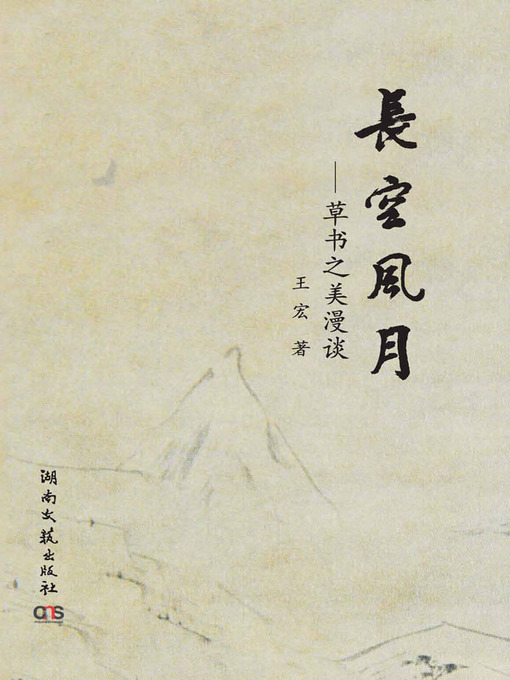 長空風月
—草书之美漫谈
王宏 著
湖南文艺出版社